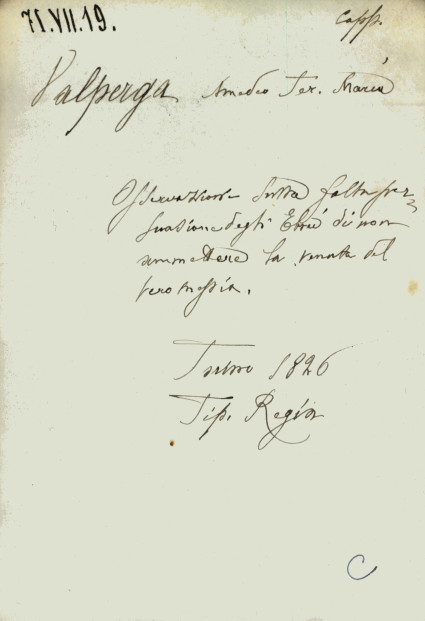 71.VII.19.
Capp.
Valperga Amedeo Ter. Maria
Osservazione sulla falsa per=
suasione degli Ebrei di non
ammettere la venuta del
vero Messia.
Torino 1826
Tip. Regia
C